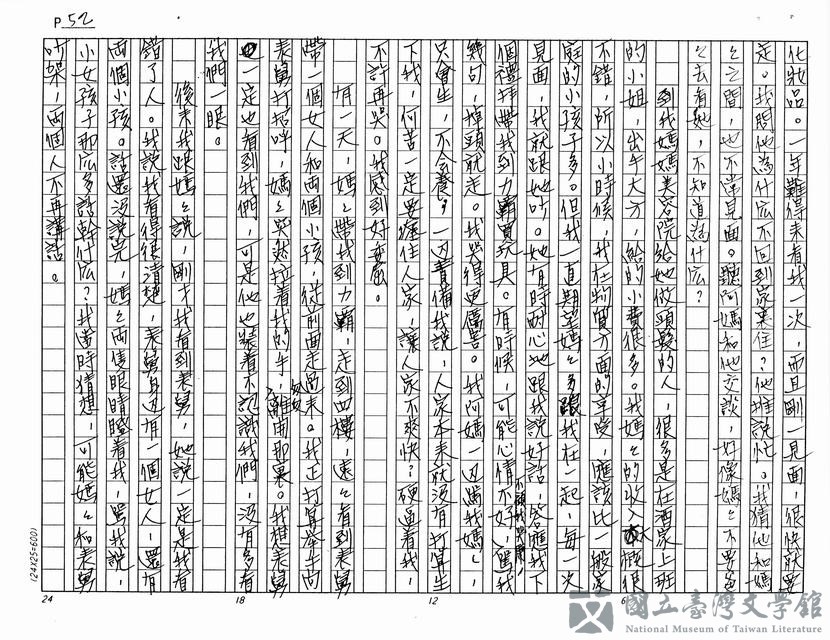 P.52
化妝品。一年難得來看我一次，而且剛一見面，很快就要
走。我問他為什麼不回到家來住？他推說忙。我猜他和媽
々之間，也不常見面。聽阿媽和他交談，好像媽々不要爸
々去看她，不知道為什麼？
到我媽媽美容院給她做頭髮的人，很多是在酒家上班
的小姐，出手大方，給的小費很多。我媽々的收入大概很
不錯，所以小時候，我在物質方面的享受，應該比一般家
庭的小孩子多。但我一直期望媽々多跟我在一起，每一次
見面，我就跟她吵。她有時耐心地跟我說好話，答應我下
個禮拜帶我到力霸買玩具。有時候，可能心情不好，罵我
幾句，掉頭就走。我哭得更傷害。我阿媽一边罵我媽々，
只會生，不会養，一边責備我說，人家本來就沒有打算生
下我，何苦一定要纏住人家，讓人家不爽快？硬逼着我，
不許再哭。我感到好委屈。
有一天，媽々帶我到力霸，走到四樓，遠々看到表舅
帶一個女人和兩個小孩，從前面走過來。我正打算舉手向
表舅打招呼，媽々突然拉着我的手，離開那裏。我想表舅
一定也看到我們，可是他也裝着不認識我們，沒有多看
我們一眼。
後來我跟媽々說，剛才我看到表舅，她說一定是我看
錯了人。我說我看得很清楚，表舅身边有一個女人，還有
兩個小孩。話還沒說完，媽々兩隻眼睛瞪着我，罵我說，
小女孩子那麼多話幹什麼？我當時猜想，可能媽々和表舅
吵架，兩個人不再講話。
24
18
12
6
(24X25=600)
國立臺灣文學館
National Museum of Taiwan Literature